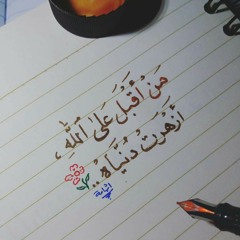 مَنْ أَقْبَلَ عَلَىٰ ٱللَّهِ،
أَزْهَرَتْ دُنْيَاهُ..